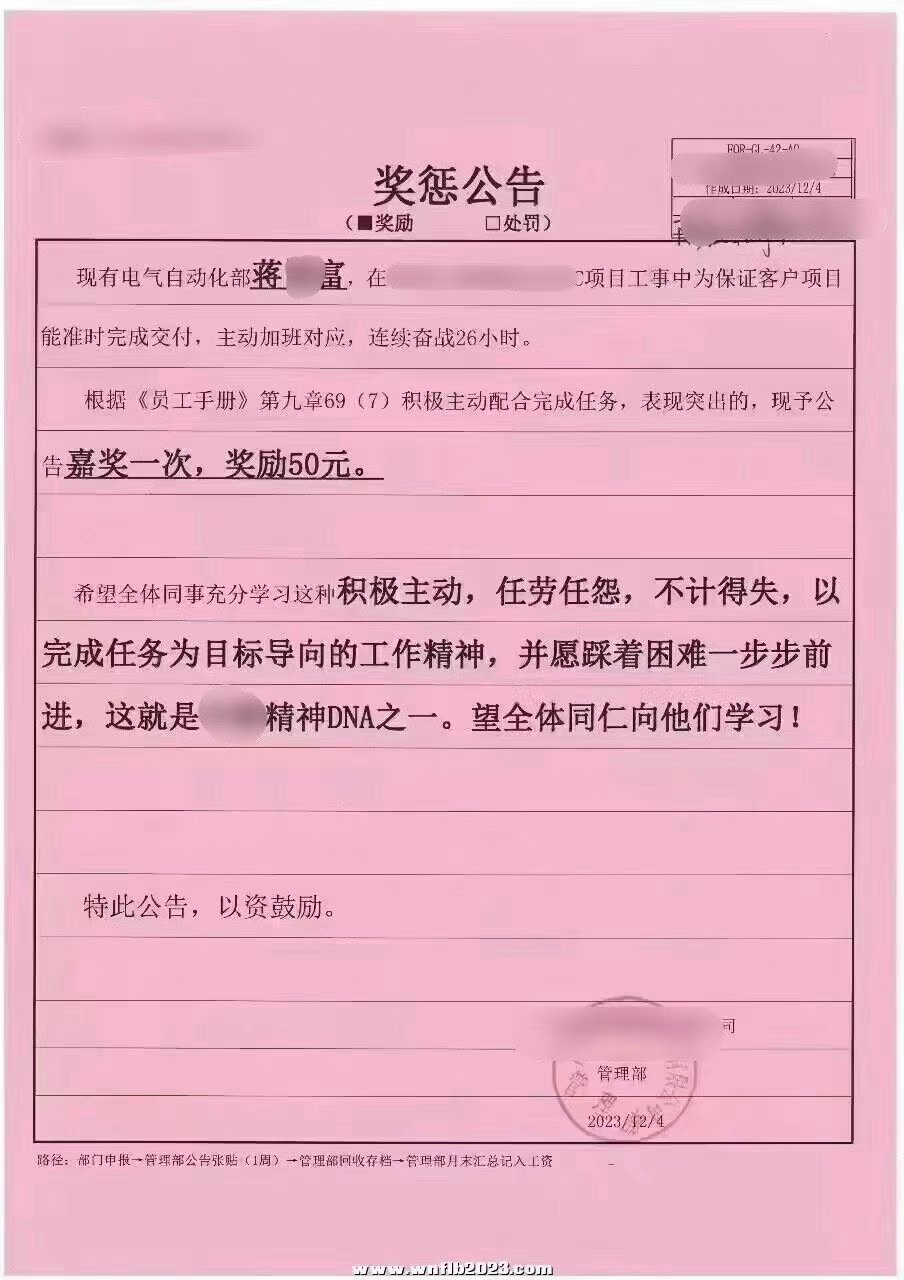 FOR-GL-42-A0
作成日期：2023/12/4
奖惩公告
（■奖励 □处罚）
现有电气自动化部蒋 富，在 C项目工事中为保证客户项目
能准时完成交付，主动加班对应，连续奋战26小时。
根据《员工手册》第九章69（7）积极主动配合完成任务，表现突出的，现予公
告嘉奖一次，奖励50元。
希望全体同事充分学习这种积极主动，任劳任怨，不计得失，以
完成任务为目标导向的工作精神，并愿踩着困难一步步前
进，这就是 精神DNA之一。望全体同仁向他们学习！
特此公告，以资鼓励。
司
管理部
2023/12/4
路径：部门申报→管理部公告张贴（1周）→管理部回收存档→管理部月末汇总记入工资
www.wnflb2023.com